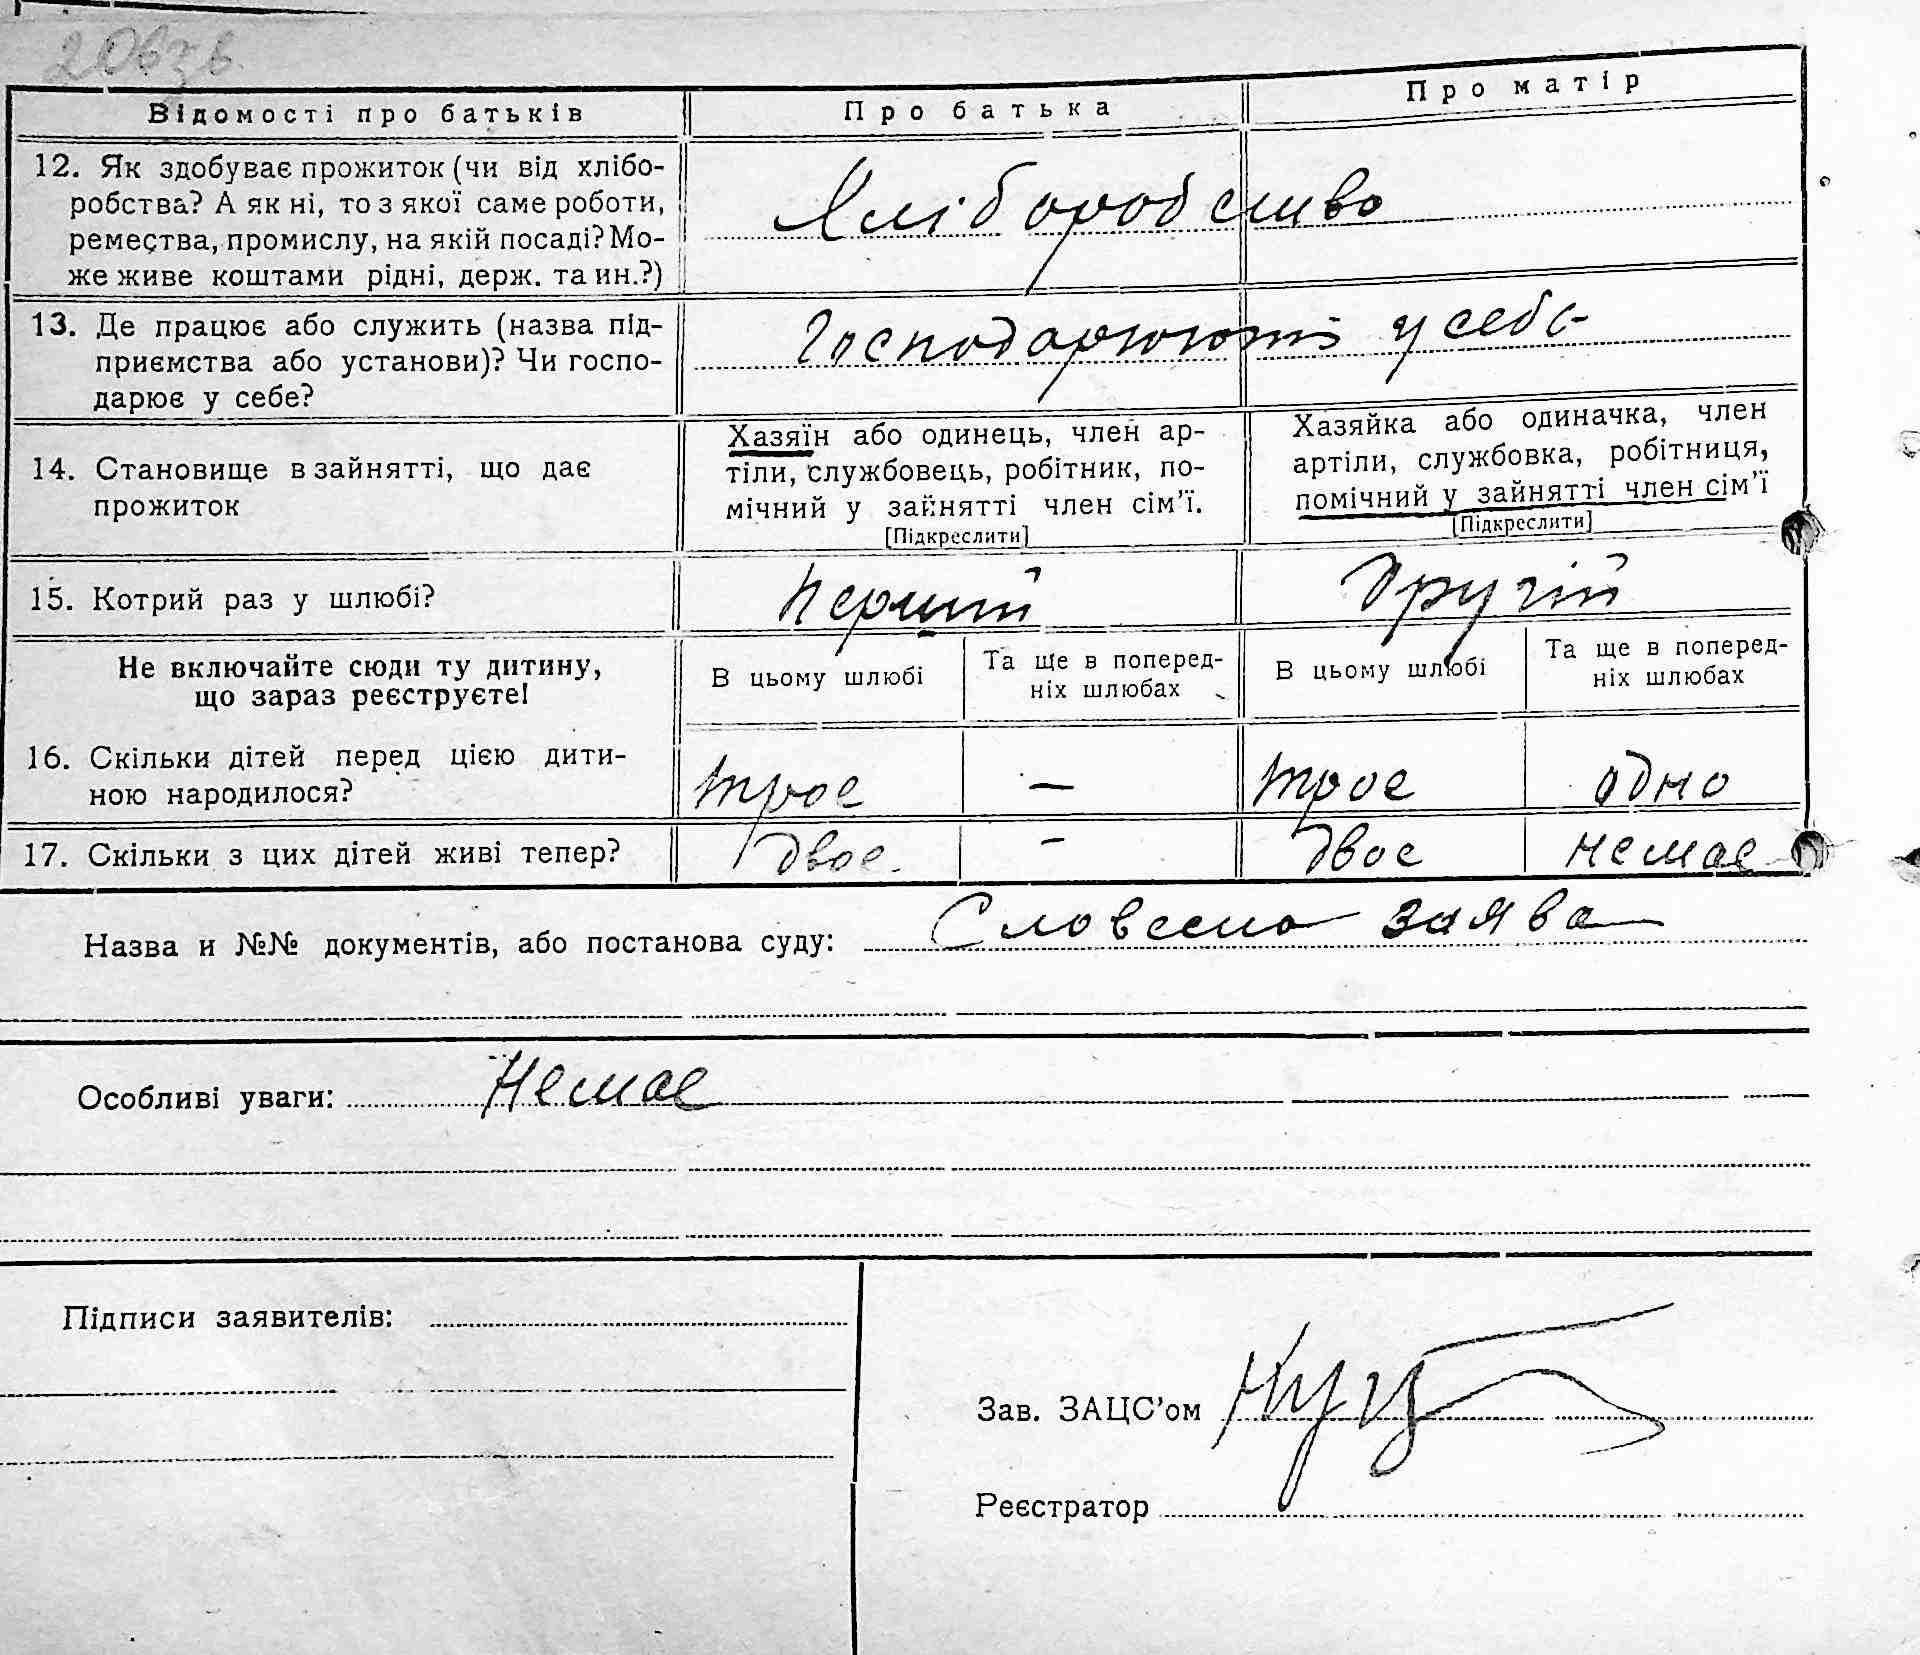 Відомості про батьків Про батька Про матір
12. Як здобуває прожиток (чи від хлібо-
робства? А як ні, то з якої саме роботи,
ремества, промислу, на якій посаді? Мо-
же живе коштами рідні, держ. та ин.?)
Хліборобство
13. Де працює або служить (назва під-
приємства або установи)? Чи госпо-
дарює у себе?
Господарюють у себе
14. Становище в зайнятті, що дає
прожиток
Хазяїн або одинець, член ар-
тіли, службовець, робітник, по-
мічний у зайнятті член сім'ї.
[Підкреслити]
Хазяйка або одиначка, член
артіли, службовка, робітниця,
помічний у зайнятті член сім'ї
[Підкреслити]
15. Котрий раз у шлюбі? Перший Другій
Не включайте сюди ту дитину,
що зараз реєструєте!
В цьому шлюбі
Та ще в поперед-
ніх шлюбах
В цьому шлюбі
Та ще в поперед-
ніх шлюбах
16. Скільки дітей перед цією дити-
ною народилося?
трое — трое одно
17. Скільки з цих дітей живі тепер? двое. - двое немае
Назва и №№ документів, або постанова суду: Словесна заява
Особливі уваги: Немае
Підписи заявителів:
Зав. ЗАЦС'ом
Реєстратор